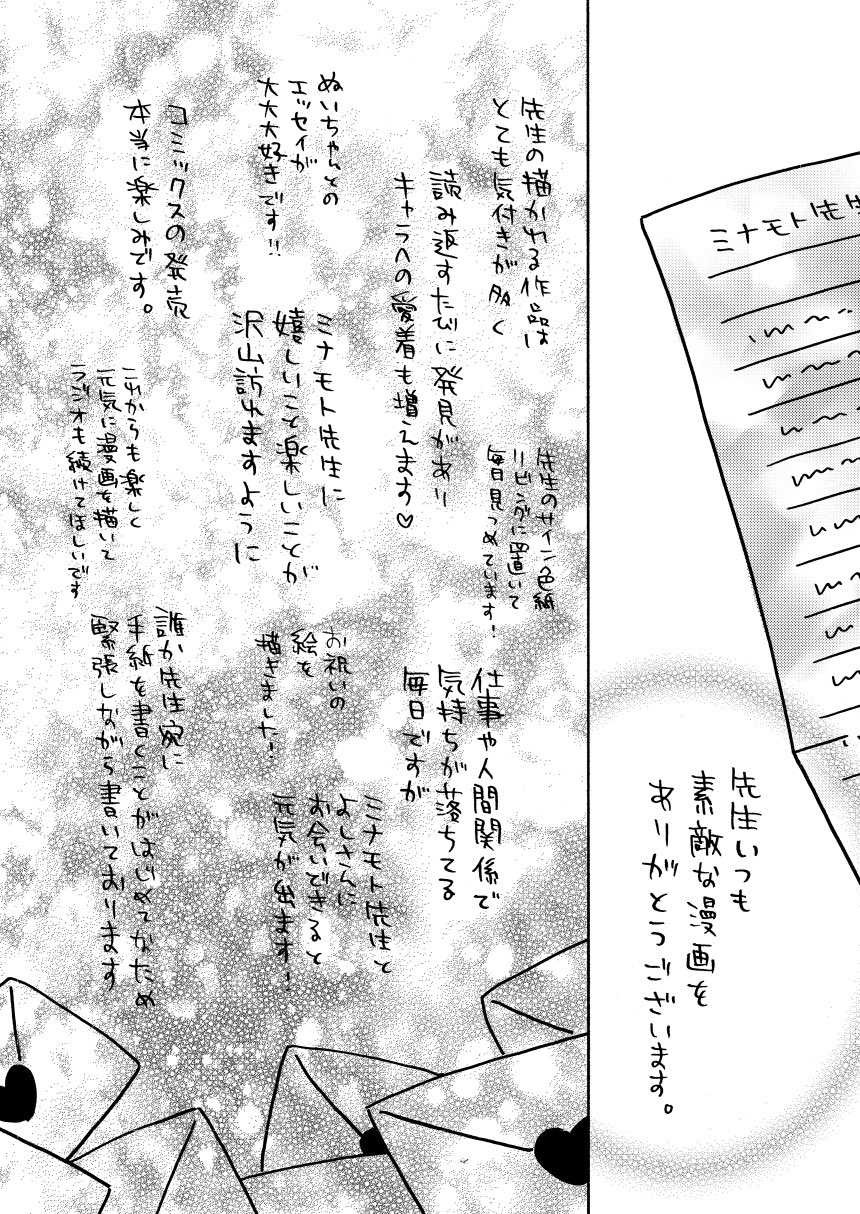 ミナモト先生
先生いつも
素敵な漫画を
ありがとうございます。
先生の描かれる作品は
とても気付きが多く
読み返すたびに発見があり
キャラへの愛着も増えます♡
先生のサイン色紙
リビングに置いて
毎日見つめています！
仕事や人間関係で
気持ちが落ちてる
毎日ですが
ミナモト先生と
よしさんに
お会いできると
元気が出ます！
ぬいちゃんとの
エッセイが
大大大好きです!!
ミナモト先生に
嬉しいこと楽しいことが
沢山訪れますように
お祝いの
絵を
描きました！
コミックスの発売
本当に楽しみです。
これからも楽しく
元気に漫画を描いて
ラジオも続けてほしいです
誰か先生宛に
手紙を書くことがはじめてなため
緊張しながら書いております